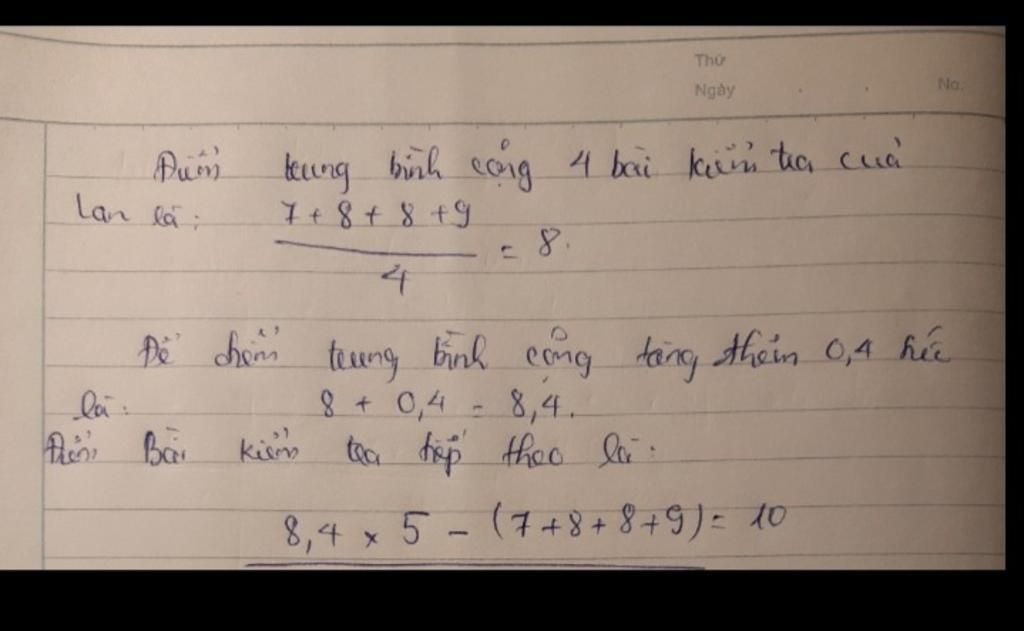 Thứ
Ngày
No.
Điểm trung bình cộng 4 bài kiểm tra của
Lan là: 7 + 8 + 8 + 9
= 8.
4
Để điểm trung bình cộng tăng thêm 0,4 tức
là: 8 + 0,4 = 8,4.
Điểm Bài kiểm tra tiếp theo là:
8,4 x 5 - (7+8+8+9) = 10